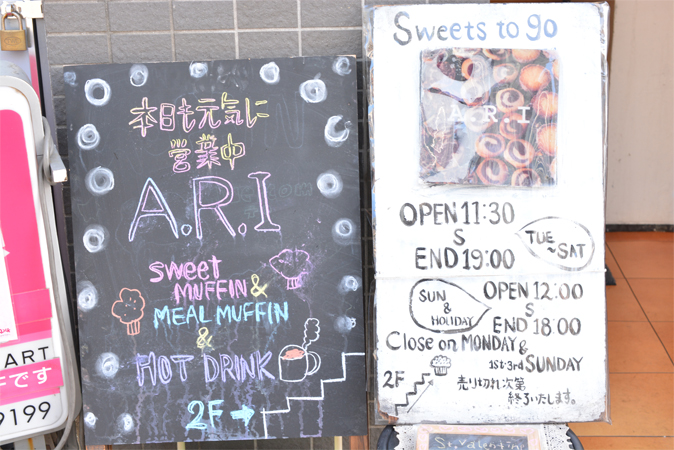 本日も元気に
営業中
A.R.I
sweet
MUFFIN &
MEAL MUFFIN
&
HOT DRINK
2F→
Sweets to go
A.R.I
OPEN 11:30
S
END 19:00
TUE
~SAT
SUN
&
HOLIDAY
OPEN 12:00
S
END 18:00
Close on MONDAY &
1st・3rd SUNDAY
2F
売り切れ次第
終了いたします。
St. Valentine
ART
です
9199